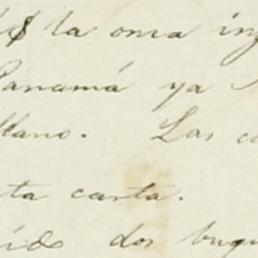 la onza
Panamá ya
llano. Las
ta carta.
ido dos buqu